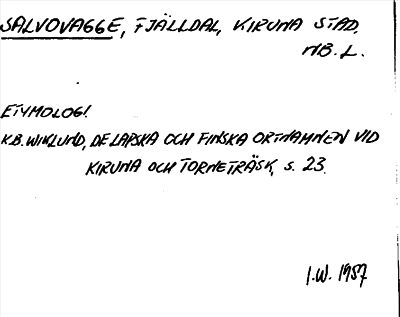 SALVOVAGGE, FJÄLLDAL, KIRUNA STAD,
NB. L.
ETYMOLOGI:
K.B. WIKLUND, DE LAPSKA OCH FINSKA ORTNAMNEN VID
KIRUNA OCH TORNETRÄSK, S. 23.
I.W. 1987